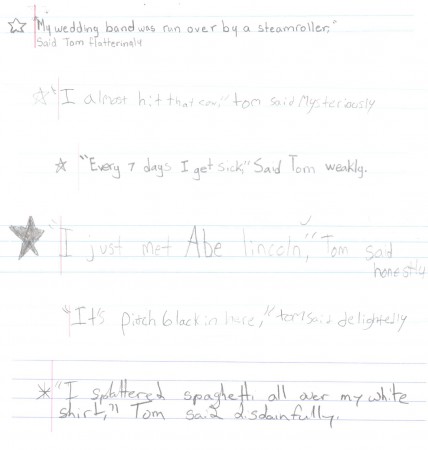 "My wedding band was run over by a steamroller,"
Said Tom flatteringly
"I almost hit that cow," tom said Mysteriously
"Every 7 days I get sick," Said Tom weakly.
"I just met Abe lincoln," Tom said
honestly
"It's pitch black in here," tom said delightedly
"I splattered spaghetti all over my white
shirt," Tom said disdainfully.